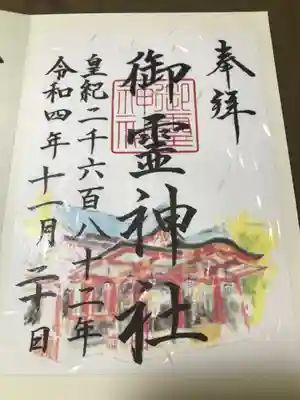 奉拝
御霊神社
御霊神社
皇紀二千六百八十二年
令和四年十一月二十日